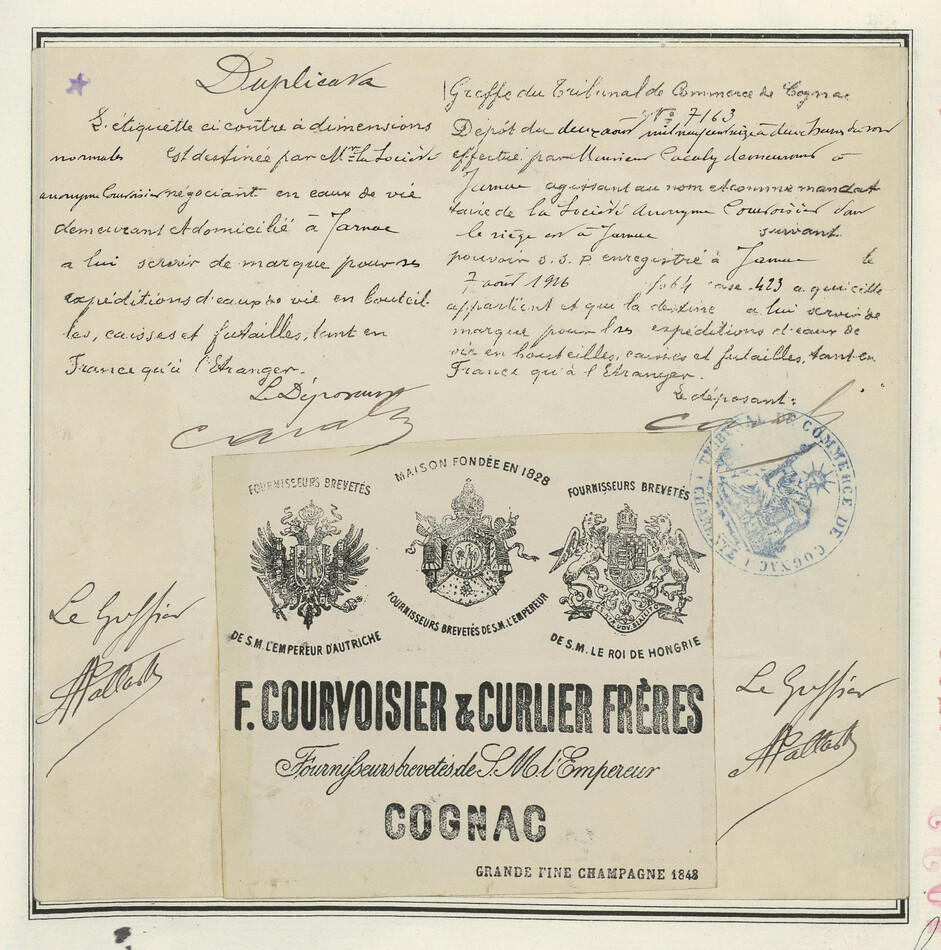 Duplicata
L'étiquette ci contre à dimensions
normales est destinée par Mr la Société
anonyme Courvoisier négociant en eaux de vie
demeurant et domicilié à Jarnac
a lui servir de marque pour ses
expéditions d'eaux de vie en bouteil-
les, caisses et futailles, tant en
France qu'à l'Etranger.
Le Déposant
Greffe du Tribunal de Commerce de Cognac
No 7163
Dépôt du deux août mil neuf cent seize à deux heures du soir
effectué par Monsieur demeurant à
Jarnac agissant au nom et comme manda
taire de la Société Anonyme Courvoisier dont
le siège est à Jarnac suivant
pouvoir s.s.p. enregistré à Jarnac le
2 août 1916 fo 64 case 423 a qui elle
appartient et qui la destine a lui servir de
marque pour les expéditions d'eaux de
vie en bouteilles, caisses et futailles, tant en
France qu'à l'Etranger.
Le déposant:
TRIBUNAL DE COMMERCE DE COGNAC
MAISON FONDÉE EN 1828
FOURNISSEURS BREVETÉS
FOURNISSEURS BREVETÉS
FOURNISSEURS BREVETÉS DE S.M. L'EMPEREUR
DE S.M. L'EMPEREUR D'AUTRICHE
DE S.M. LE ROI DE HONGRIE
Le Greffier
Le Greffier
F. COURVOISIER & CURLIER FRÈRES
Fournisseurs brevetés de S.M. l'Empereur
COGNAC
GRANDE FINE CHAMPAGNE 1848